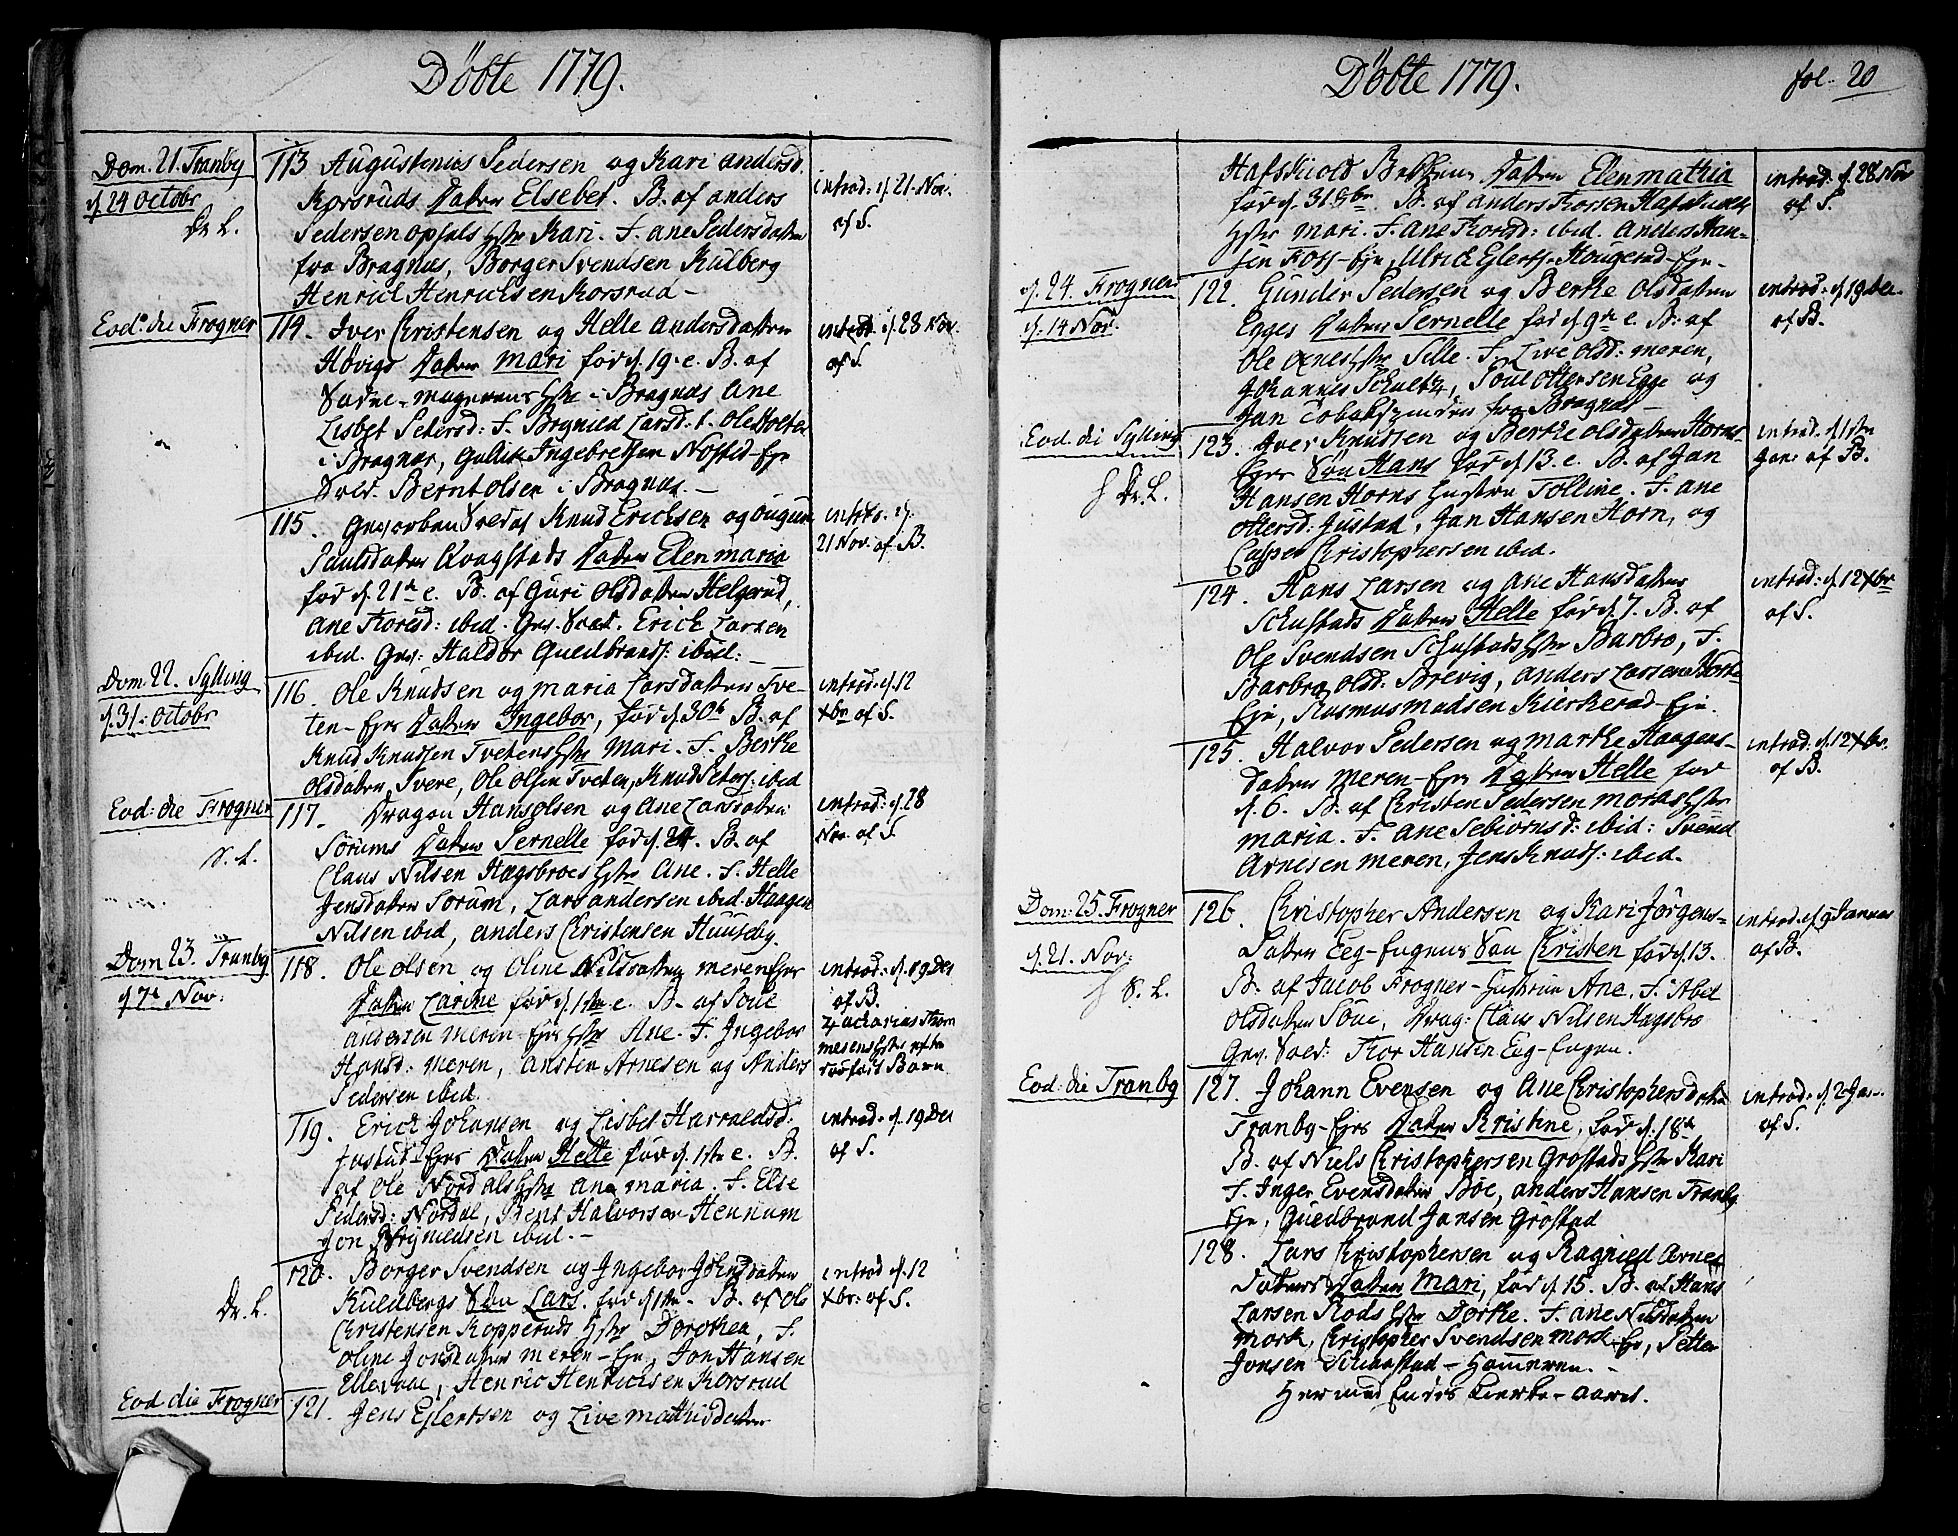 Döbte 1779.
Dom. 21. Tranby
d. 24 Octobr
Dr. L.
113 Augustenius Pedersen og Kari Andersd.
Korsruds Datter Elsebet. B. af Anders
Pedersen Opsals Hstr Kari. F. Ane Pedersdatter
fra Bragnæs, Borger Svendsen Kulberg
Henrich Henrichsen Korsrud -
introd: d. 21. Nov.
af S.
Eod. die Frogner
114. Iver Christensen og Helle Andersdatter
Hövigs Datter Mari föd d. 19. e. B. af
Sadne-magerens Hstr i Bragnæs Ane
Lisbet Petersd: F. Brynild Larsd: Ole Holter
i Bragnæs, Gullik Ingebretsen Nøsted-Eje
Sold. Bernt Olsen i Bragnæs. -
introd: d. 28 Nov.
af S.
115. Gevorben Soldat Knud Erichsen og Gugun
Paulsdatter Qvagstads Datter Elen Maria
föd d. 21de e. B. af Guri Olsdatter Helgerud,
Ane Toresd: ibid. Gev. Sold. Erick Larsen
ibid. Gev: Haldor Guldbrands: ibid: -
introd. d.
21 Nov. af B.
Dom. 22. Sylling
d. 31: Octobr
116. Ole Knudsen og Maria Larsdatter Tve-
ten-Ejes Datter Ingebor, föd d. 30te B. af
Knud Knudsen Tvetens Hstr Mari. F. Berthe
Olsdatter Svere, Ole Olsen Tveten, Knud Peters: ibid
introd. d. 12
Xbr af S.
Eod: die Frogner
S. L.
117. Dragon Hans Olsen og Ane Larsdatter
Sörums Datter Pernelle föd d. 24. B. af
Claus Nilsen Hagsbroes Hstr Ane. F. Helle
Jensdatter Sorum, Lars Andersen ibid. Haagen
Nilsen ibid, Anders Christensen Huuseby.
introd: d. 28
Nov. af S.
Dom 23. Tranby
d. 7de Nov:
118. Ole Olsen og Oline Nilsdatter Meren Ejes
Datter Carine föd d. 1ste e. B. af Poul
Andersen Meren-Ejes Hstr Ane. F. Ingebor
Hansd: Meren, Ansten Arnesen og Anders
Pedersen ibid.
introd: d. 19 Des
af B.
Zacharias Thom
mesens Hstr efter
dödfött Barn
119. Erick Johansen og Lisbet Harraldsd:
Justad-Ejes Datter Helle föd d. 1ste e. B.
af Ole Nordals Hstr Ane Maria. F. Else
Pedersd: Nordal, Bent Halvorsen Hennum
Jon Brynildsen ibid. -
introd. d. 19 Des
af S.
Dr. L.
120. Borger Svendsen og Ingebor Johnsdatter
Kuldbergs Sön Lars. föd d. 1ste. B. af Ole
Christensen Kopperuds Hstr Dorothea, F.
Oline Jonsdatter Meren-Eje, Jon Hansen
Ellevaae, Henric Henrichsen Korsrud
introd d. 12
Xbr: af S.
Eod die Frogner
121. Jens Ejlertsen og Live Mathisdatter
Döbte 1779.
fol. 20
Hafskiold Bekkens Datter Elen Mathia
föd d. 31 8br. B. af Anders Torsen Hafskiolds
Hstr Mari. F. Ane Toresd: ibid. Anders Han-
sen Foss-Eje, Ulrick Ejlerts. Hougerud-Eje-
introd: d. 28 Nov
af S.
d. 24. Frogner
d. 14 Nov.
122. Gunder Pedersen og Berthe Olsdatter
Egges Datter Pernelle föd d. 9de e. B: af
Ole Hstr Sille. F. Live Olsd: Meren,
Johannes Schultz, Poul Ottersen Egge og
Jan Tobakspinder fra Bragnæs -
introd: d. 19 Dec.
af B.
Eod. die Sylling
Dr. L.
123. Iver Knudsen og Berthe Olsdatter Horns-
Ejes Sön Hans föd d. 13. e. B. af Jan
Hansen Horns Hustru Tolline. F. Ane
Ottersd: Justad, Jan Hansen Horn, og
Casper Christophersen ibid.
introd. d. 1ste
Jan: af B.
124. Hans Larsen og Ane Hansdatter
Schustads Datter Helle föd d. 7. B. af
Ole Svendsen Schustads Hstr Barbro, F.
Barbro Olsd: Brevig, Anders Larsen
Eje, Rasmus Madsen Kierkerud-Eje.
introd: d. 12 Xbr
af S.
125. Halvor Pedersen og Marthe Haagens-
datter Meren-Ejes Datter Helle föd
d. 6. B. af Christen Pedersen Moræs Hstr
Maria. F. Ane Sebiörnsd: ibid: Svend
Arnesen Meren, Jens Knuds: ibid.
introd: d. 12 Xbr.
af B.
Dom: 25. Frogner
d. 21. Nov:
S. L.
126. Christopher Andersen og Kari Jörgens-
datter Eeg-Eugnes Sön Christen föd d. 13.
B. af Jacob Frogner-Hustrue Ane. F. Abel
Olsdatter Söue, Drag: Claus Nilsen Hagsbro
Gev. Sold: Thor Hansen Eeg-Eugen.
introd. d. 9 Januas
af B.
Eod: die Tranby
127. Johann Evensen og Ane Christophersdatter
Tranby-Ejes Datter Kristine, föd d. 18de
B. af Niels Christophersen Grøstads Hstr Kari
F. Inger Evensdatter Böe, Anders Hansen Tranby
Eje, Guldbrand Jansen Gröstad
introd. d. 2 Jan.
af S.
128. Lars Christophersen og Ragnild Arnes
datters Datter Mari, föd d. 15. B. af Hans
Larsen Rods Hstr Dorthe. F. Ane Nilsdatter
Mork, Christopher Svendsen Mork-Eje, Petter
Jonsen Schiæstad-Hameren. -
Her med Endes Kierke-Aaret.